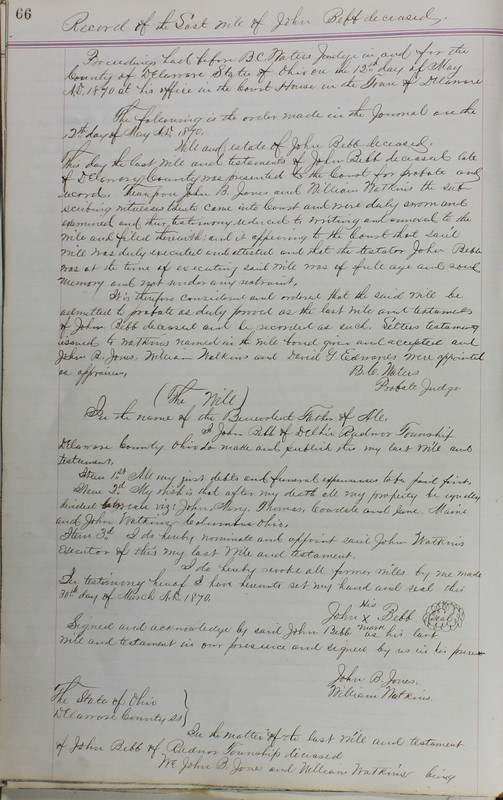 66
Record of the Last Will of John Bebb deceased.
Proceedings had before B.C. Waters Judge in and for the
County of Delaware State of Ohio on the 12th day of May
A.D. 1870 at his office in the Court House in the Town of Delaware
The following is the order made in the Journal on the
12th day of May A.D. 1870.
Will and estate of John Bebb deceased.
This day the last will and testaments of John Bebb deceased late
of Delaware County was presented to the Court for probate and
record. Thereupon John B. Jones and William Watkins the sub
scribing witnesses thereto came into Court and were duly sworn and
examined and their testimony reduced to writing and annexed to the
will and filed therewith: and it appearing to the Court that said
will was duly executed and attested and that the testator John Bebb
was at the time of executing said will was of full age and sound
memory and not under any restraint.
It is therefore considered and ordered that the said will be
admitted to probate as duly proved as the last will and testaments
of John Bebb deceased and be recorded as such. Letters testamentary
issued to Watkins named in the will bond given and accepted and
John B. Jones, William Watkins and David G. Edwards were appointed
as appraisers.
B.C. Waters
Probate Judge
(The Will)
In the name of the Benevolent Father of All.
I John Bebb of Radnor Township
Delaware County Ohio do make and publish this my last will and
testament.
Item 1st All my just debts and funeral expenses to be paid first.
Item 2d My wish is that after my death all my property be equally
divided between viz: John, Thomas, and Jane.
and John Watkins Columbus Ohio.
Item 3d I do hereby nominate and appoint said John Watkins
Executor of this my last will and testament.
I do hereby revoke all former wills by me made
In testimony hereof I have hereunto set my hand and seal this
30th day of March A.D. 1870.
His
John X Bebb Seal
mark
Signed and acknowledge by said John Bebb as his last
will and testament in our presence and signed by us in his presence
John B. Jones.
William Watkins.
The State of Ohio
Delaware County SS
In the matter of the last will and testament
of John Bebb of Radnor Township deceased
We John B. Jones and William Watkins being